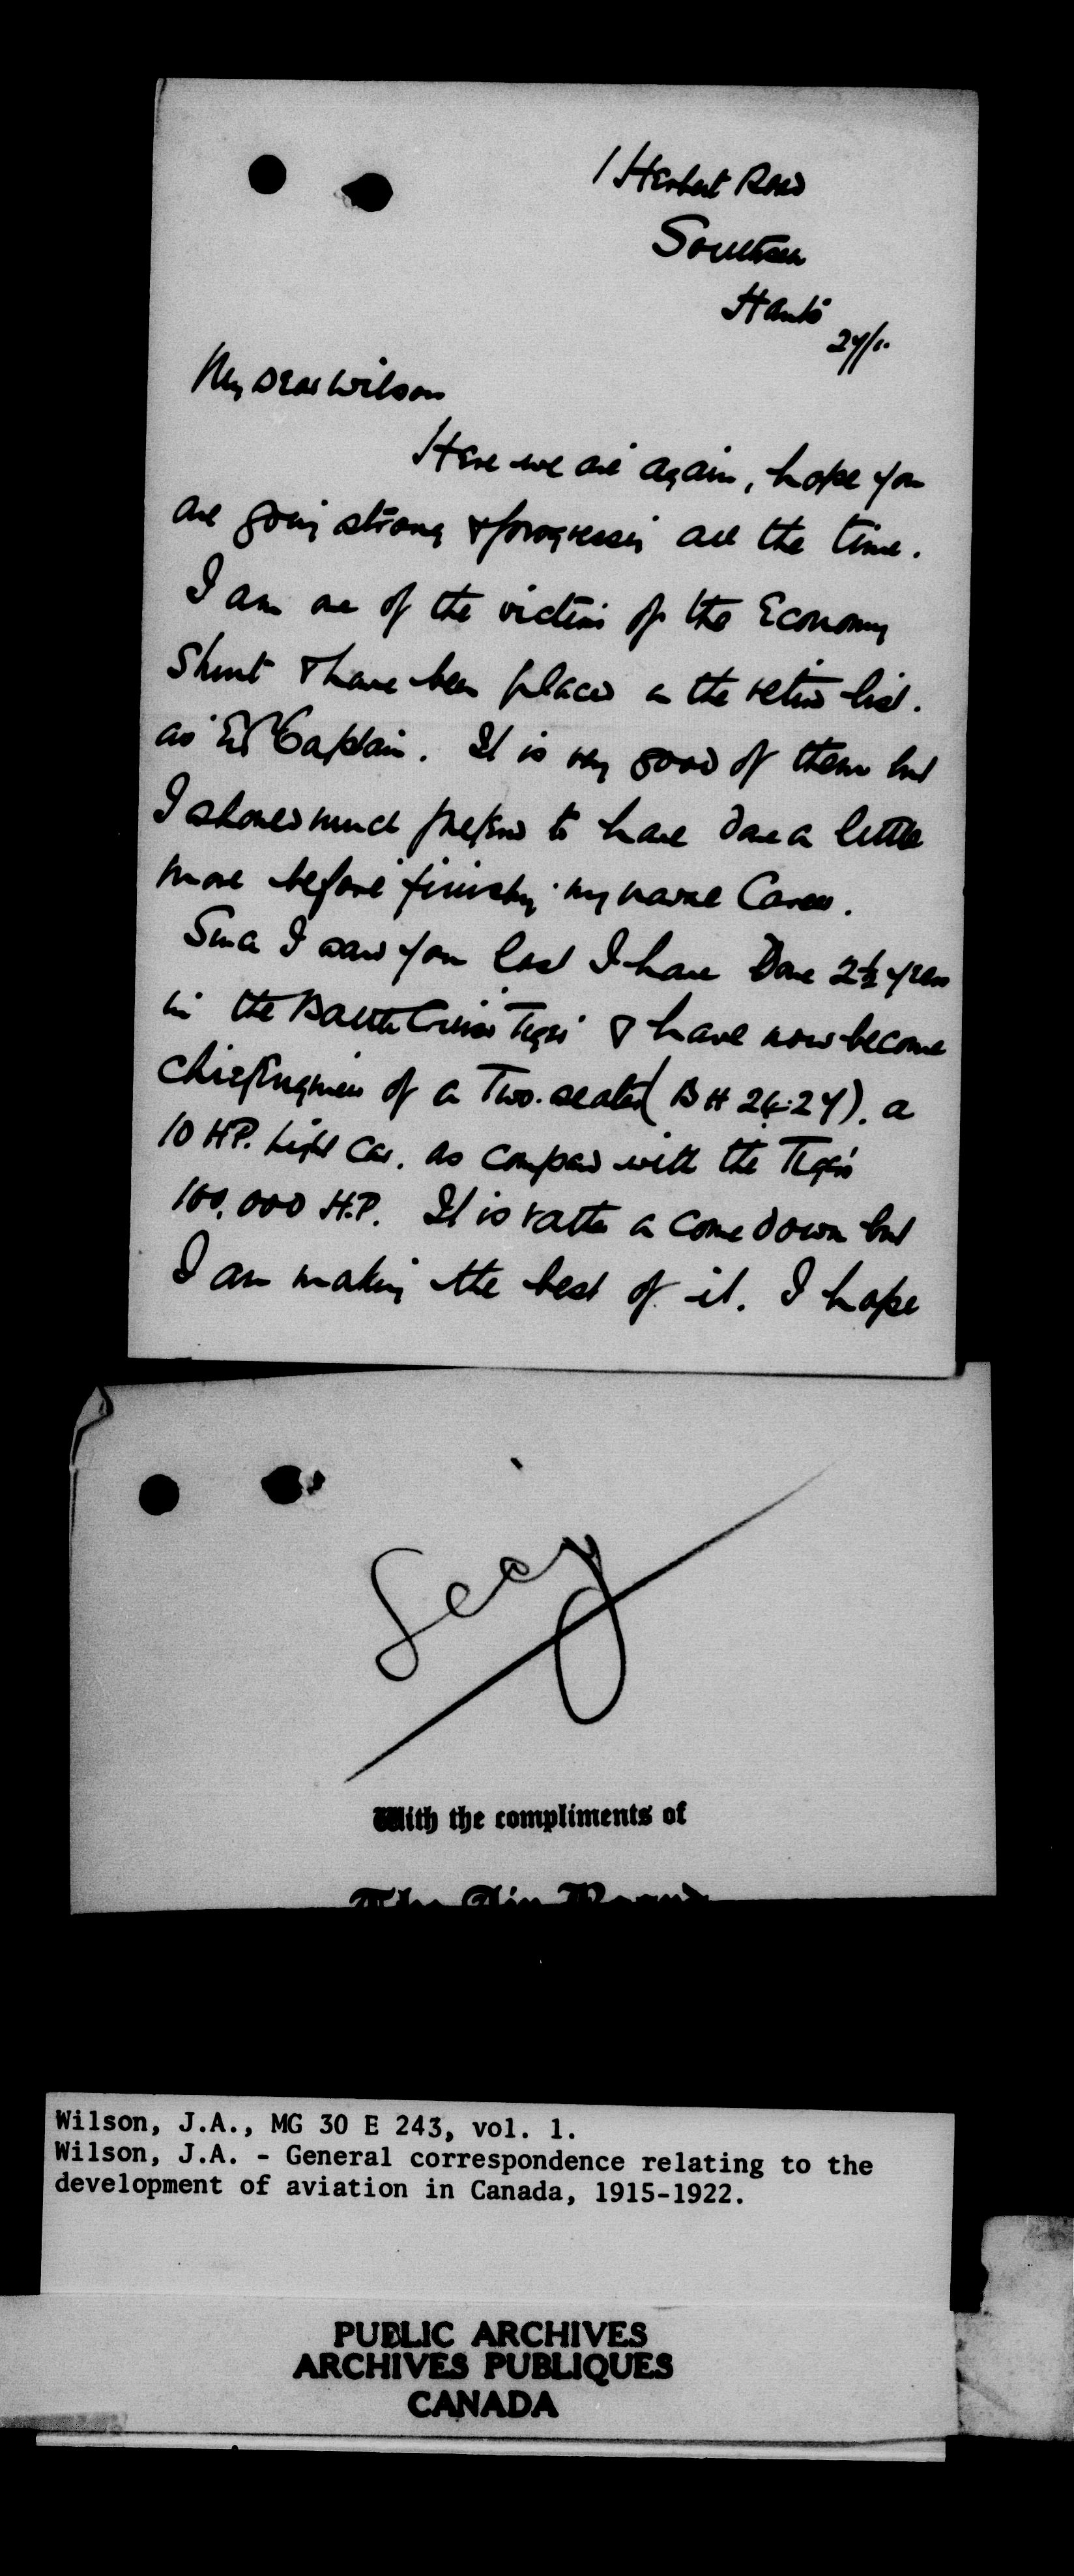 1 Herbert Road
Southsea
Hants
My Dear Wilson
Here we are again, hope you
are going strong & progressing all the time.
I am one of the victims of the Economy
Stunt & have been placed on the retired list.
as Captain. It is very good of them but
I should much prefered to have done a little
more before finishing my naval Career.
Since I saw you last I have Done 2½ years
in the Battle Cruiser Tiger & have now become
chief Engineer of a Two-seater (BH 24-27). a
10 HP. Light Car. as compared with the Tiger's
100,000 H.P. It is rather a come down but
I am making the best of it. I hope
With the compliments of
The Air Board
Wilson, J.A., MG 30 E 243, vol. 1.
Wilson, J.A. - General correspondence relating to the
development of aviation in Canada, 1915-1922.
PUBLIC ARCHIVES
ARCHIVES PUBLIQUES
CANADA